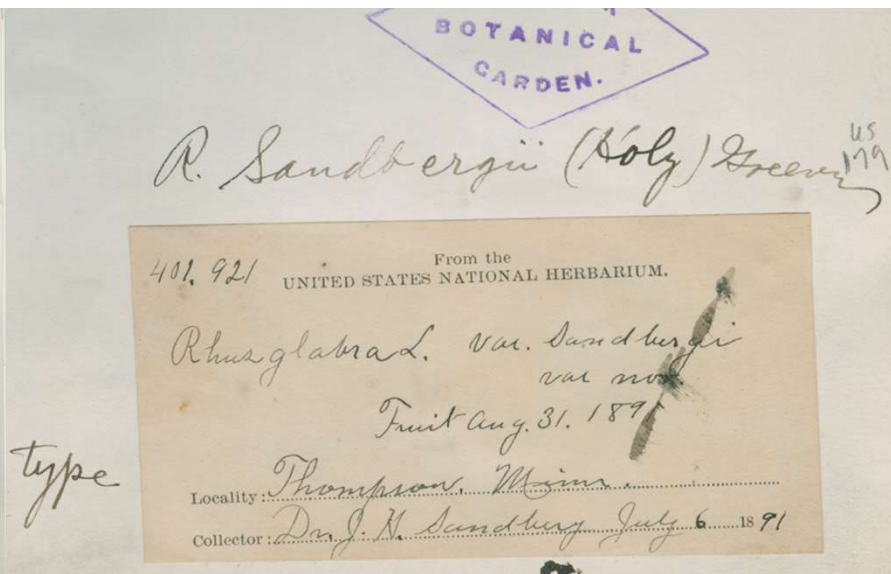 BOTANICAL
GARDEN.
R. Sandbergii (Holz) Greene
US
179
401. 921
From the
UNITED STATES NATIONAL HERBARIUM.
Rhus glabra L. var. Sandbergi
var nov.
Fruit Aug. 31. 1891
type
Locality: Thompson, Minn.
Collector: Dr. J. H. Sandberg July 6 1891